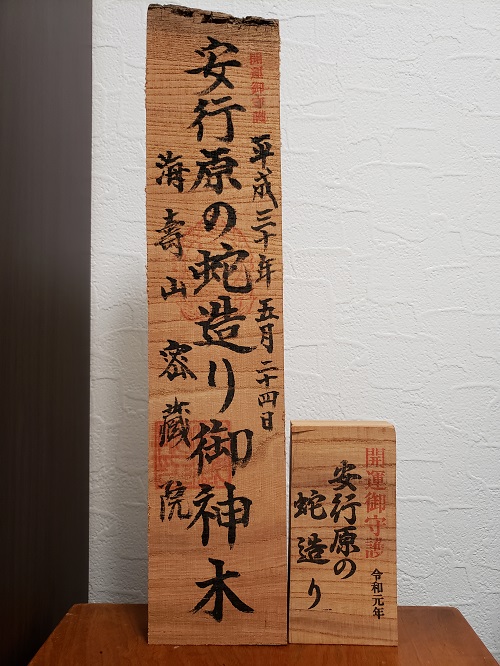 開運御守護
平成三十年五月二十四日
安行原の蛇造り御神木
海寿山密蔵院
開運御守護
安行原の
蛇造り
令和元年